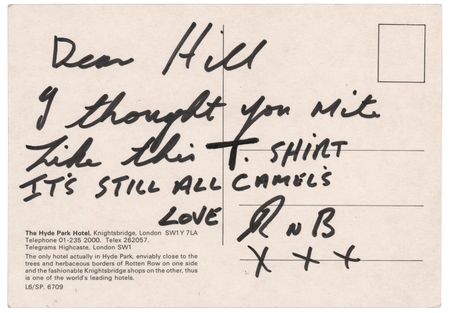 Dear Hill
I thought you mite
Like this T. SHIRT
IT'S STILL ALL CAMEL'S
LOVE R N B
X X X
The Hyde Park Hotel, Knightsbridge, London SW1Y 7LA
Telephone 01-235 2000. Telex 262057.
Telegrams Highcaste, London SW1
The only hotel actually in Hyde Park, enviably close to the
trees and herbaceous borders of Rotten Row on one side
and the fashionable Knightsbridge shops on the other, thus
is one of the world's leading hotels.
L6/SP. 6709